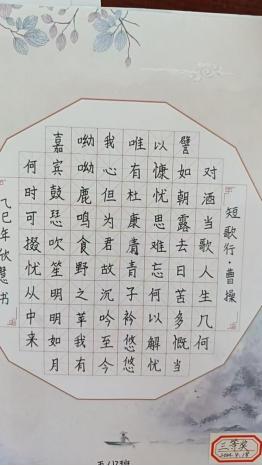 短歌行·曹操
对酒当歌人生几何
譬如朝露去日苦多慨当
以慷忧思难忘何以解忧
唯有杜康青青子衿悠悠
我心但为君故沉吟至今
呦呦鹿鸣食野之苹我有
嘉宾鼓瑟吹笙明明如月
何时可掇忧从中来
乙巳年欣慧书
三等奖